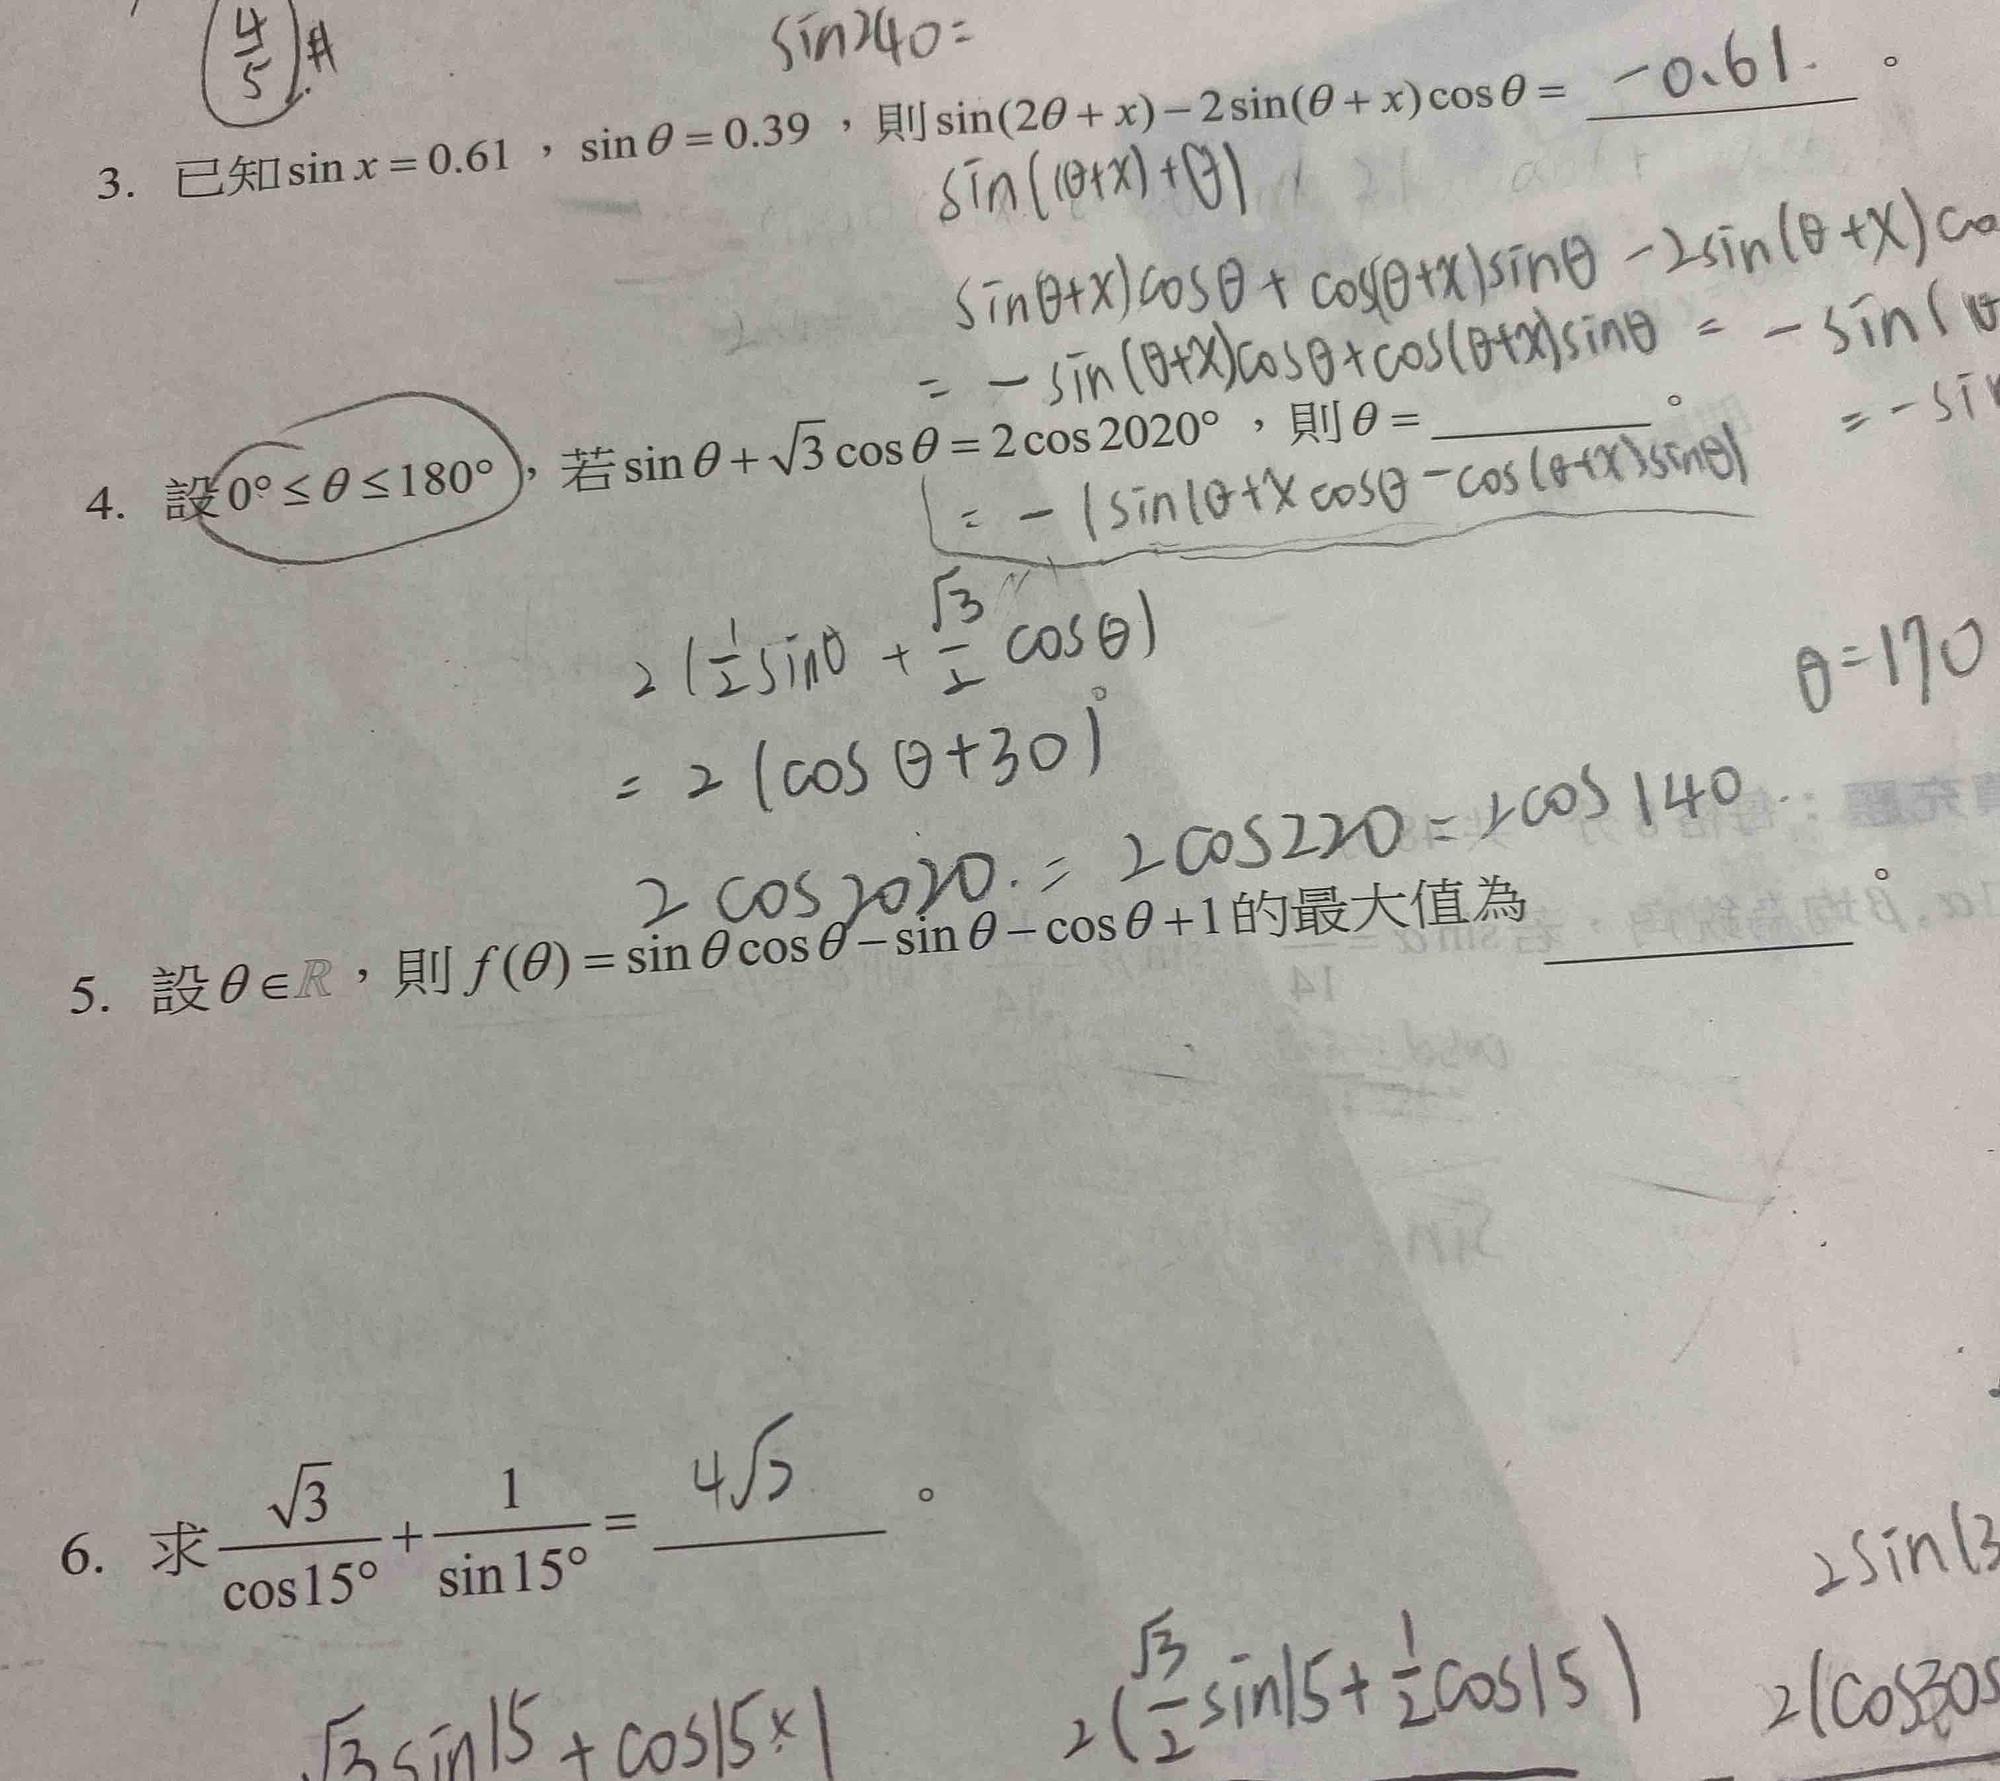 4/5 #
sin240=
3. 已知sin x = 0.61，sin θ = 0.39，則sin(2θ + x) − 2sin(θ + x)cos θ = -0.61 。
sin((θ+x)+θ)
sinθ+x)cosθ + cos(θ+x)sinθ - 2sin(θ+x)
= - sin(θ+x)cosθ+cos(θ+x)sinθ = - sin(
= - sin
4. 設0° ≤ θ ≤ 180°，若sin θ + √3 cos θ = 2cos 2020°，則θ = ______。
= - (sin(θ+x cosθ - cos(θ+x)sinθ)
2(1/2 sinθ + √3/2 cosθ)
θ=170
= 2(cos θ+30)°
2 cos2020. = 2cos220 = 2cos 140
5. 設θ∈ℝ，則f(θ) = sin θ cos θ − sin θ − cos θ + 1的最大值為 ______。
6. 求 √3/cos15° + 1/sin15° = 4√2 。
2sin(3
√3 sin15 + cos15×1
2(√3/2 sin15 + 1/2 cos15)
2(cos30s